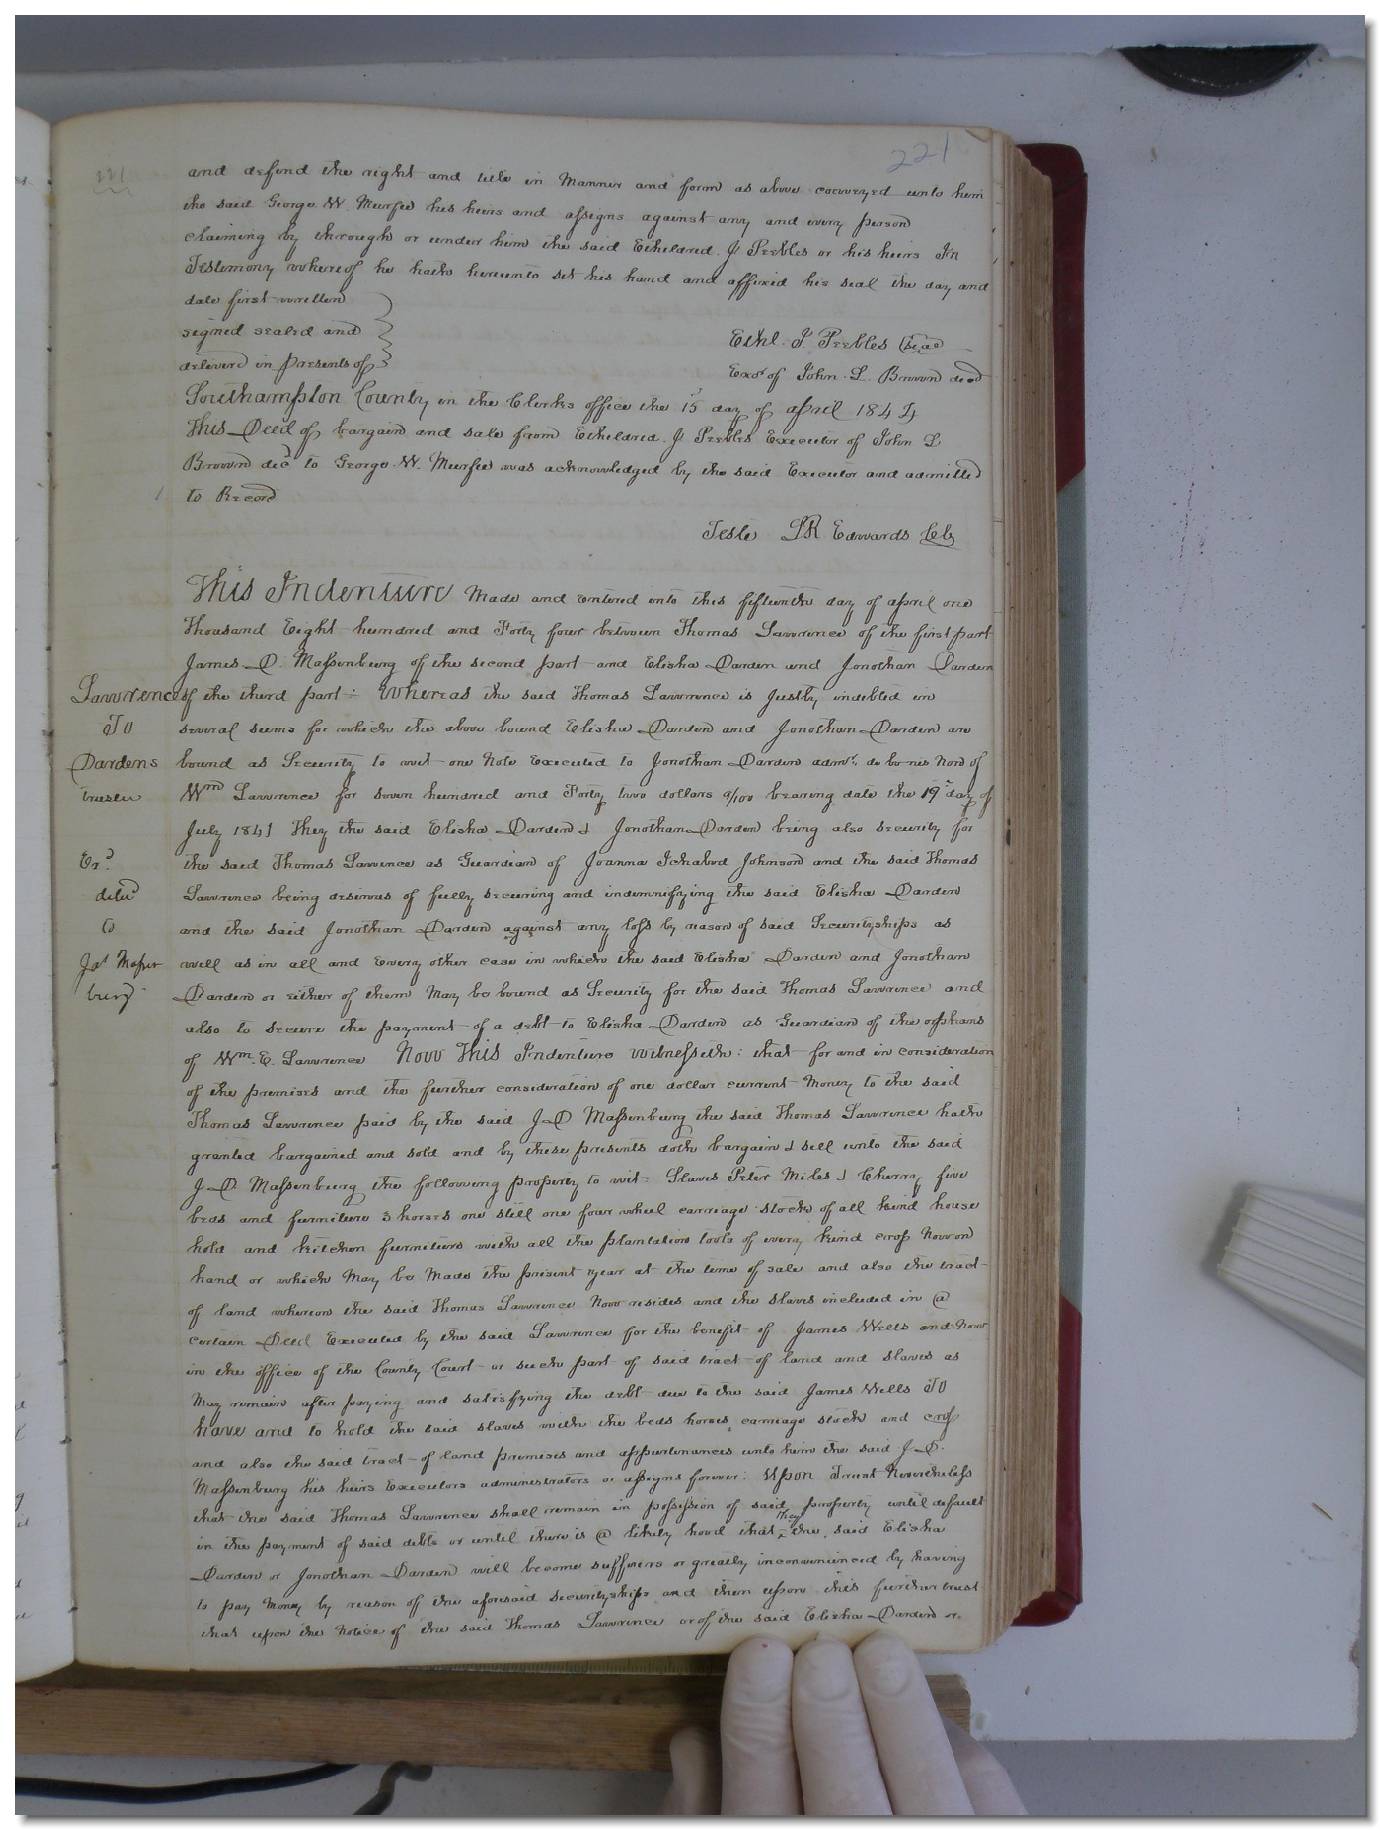 221
and defend the right and title in Manner and form as above conveyed unto him
the said George W. Murfee his heirs and assigns against any and every person
claiming by through or under him the said Etheldred J Peebles or his heirs In
Testimony whereof he hath hereunto set his hand and affixed his seal the day and
date first written
signed sealed and
deliverd in presents of
Ethl. J Peebles Seal
Exor of John L. Brown decd
Southampton County in the Clerks office the 15 day of april 1844
This Deed of bargain and sale from Etheldred J Peebles Executor of John L
Brown decd to George W. Murfee was acknowledged by the said Executor and admitted
to Record
Teste LR Edwards Clk
This Indenture Made and entered into this fifteenth day of april one
Thousand Eight hundred and Forty four between Thomas Lawrence of the first part
James D. Massenburg of the second part and Elisha Darden and Jonathan Darden
Lawrences
To
Dardens
trustee
Exd
delid
to
Jas Massen
burg
of the third part: Whereas the said Thomas Lawrence is Justly indebted in
several sums for which the above bound Elisha Darden and Jonothan Darden are
bound as Security to wit one Note Executed to Jonothan Darden admr. de bonis Nond of
Wm Lawrence for seven hundred and Forty two dollars /100 bearing date the 19 day of
July 1841 They the said Elisha Darden & Jonothan Darden being also security for
the said Thomas Lawrence as Guardian of Joanna Ichabud Johnson and the said Thomas
Lawrence being desirous of fully securing and indemnifying the said Elisha Darden
and the said Jonothan Darden against any loss by reason of said Securityships as
well as in all and Every other case in which the said Elisha Darden and Jonothan
Darden or either of them May be bound as Security for the said Thomas Lawrence and
also to secure the payment of a debt to Elisha Darden as Guardian of the orphans
of Wm. E. Lawrence Now This Indenture Witnesseth: that for and in consideration
of the premises and the further consideration of one dollar current Money to the said
Thomas Lawrence paid by the said J D Massenburg the said Thomas Lawrence hath
granted bargained and sold and by these presents doth bargain & sell unto the said
J D. Massenburg the following property to wit: Slaves Peter Miles & Cherry five
beds and furniture 3 horses one still one four wheel carriage stock of all kind house
hold and kitchen furniture with all the plantation tools of every kind crop Now on
hand or which May be Made the present year at the time of sale and also the tract
of land whereon the said Thomas Lawrence Now resides and the slaves included in @
certain Deed Executed by the said Lawrence for the benefit of James Wells and Now
in the office of the County Court or such part of said tract of land and slaves as
May remain after paying and satisfying the debt due to the said James Wells To
have and to hold the said slaves with the beds horses carriage stock and crop
and also the said tract of land premises and appurtenances unto him the said J. D.
Massenburg his heirs Executors administrators or assigns forever: Upon Trust Nevertheless
that the said Thomas Lawrence shall remain in possession of said property until default
in the payment of said debts or until there is @ likely hood that they the said Elisha
Darden or Jonothan Darden will become sufferers or greatly inconvenienced by having
to pay Money by reason of the aforesaid securityships and then upon this further trust
that upon the Notice of the said Thomas Lawrence or of the said Elisha Darden or